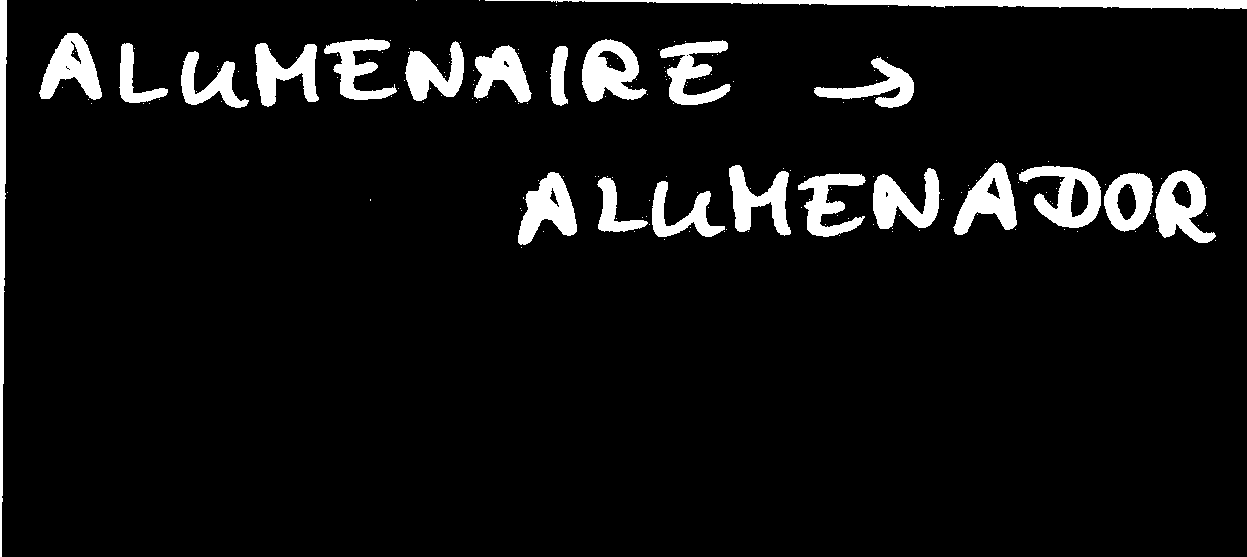 ALUMENAIRE →
ALUMENADOR